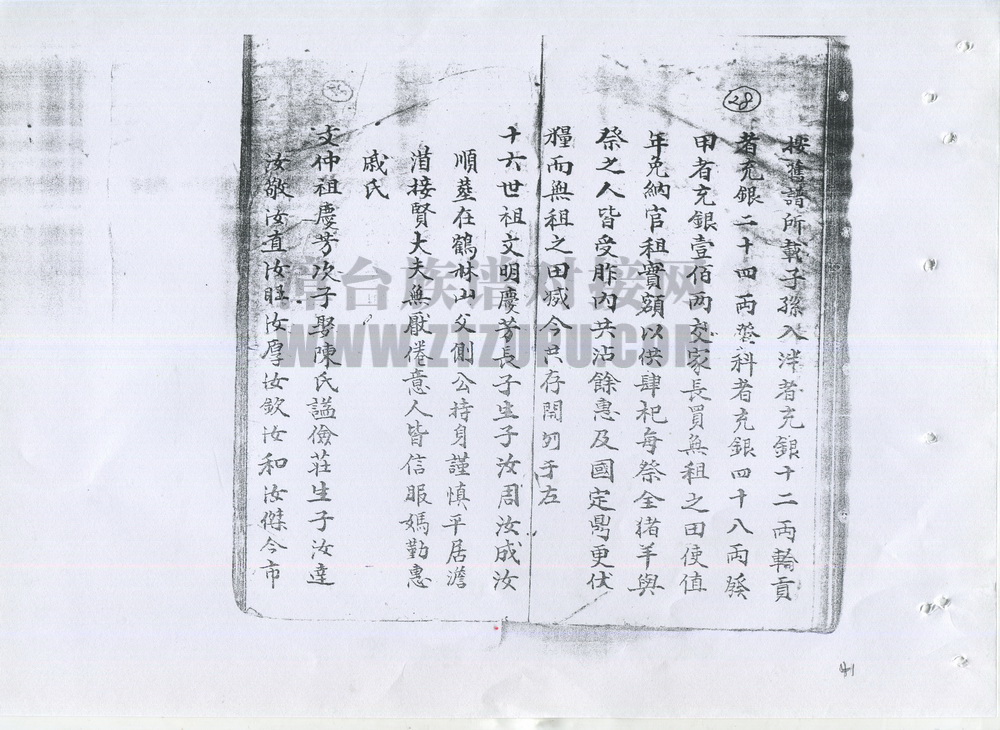 28
按舊譜所載子孫入泮者充銀十二兩輪貢
者充銀二十四兩登科者充銀四十八兩發
甲者充銀壹佰兩交家長買無租之田使值
年免納官租實額以供肆祀每祭全猪羊與
祭之人皆受胙內共沾餘惠及國定鼎更伏
糧而無租之田減今共存開列于左
十六世祖文明慶芳長子生子汝周汝成汝
順塟在鶴林山父側公持身謹慎平居澹
泊接賢大夫無厭倦意人皆信服媽勤惠
戚氏
文仲祖慶芳次子娶陳氏謚儉莊生子汝達
汝敬汝直汝旺汝厚汝欽汝和汝傑今市
尋根台族譜对接网
WWW.ZTZUPU.COM
41